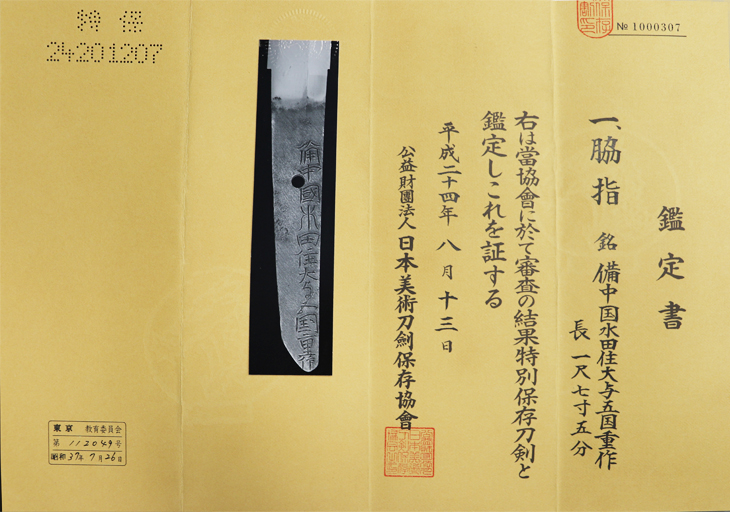 № 1000307
鑑定書
一、脇指 銘 備中国水田住大与五国重作
長 一尺七寸五分
右は當協會に於て審査の結果特別保存刀劍と
鑑定しこれを証する
平成二十四年 八月 十三日
公益財團法人 日本美術刀劍保存協會
備中國水田住大与五国重作
特保
24201207
東京 教育委員会
第 112049号
昭和 37年 7月 26日